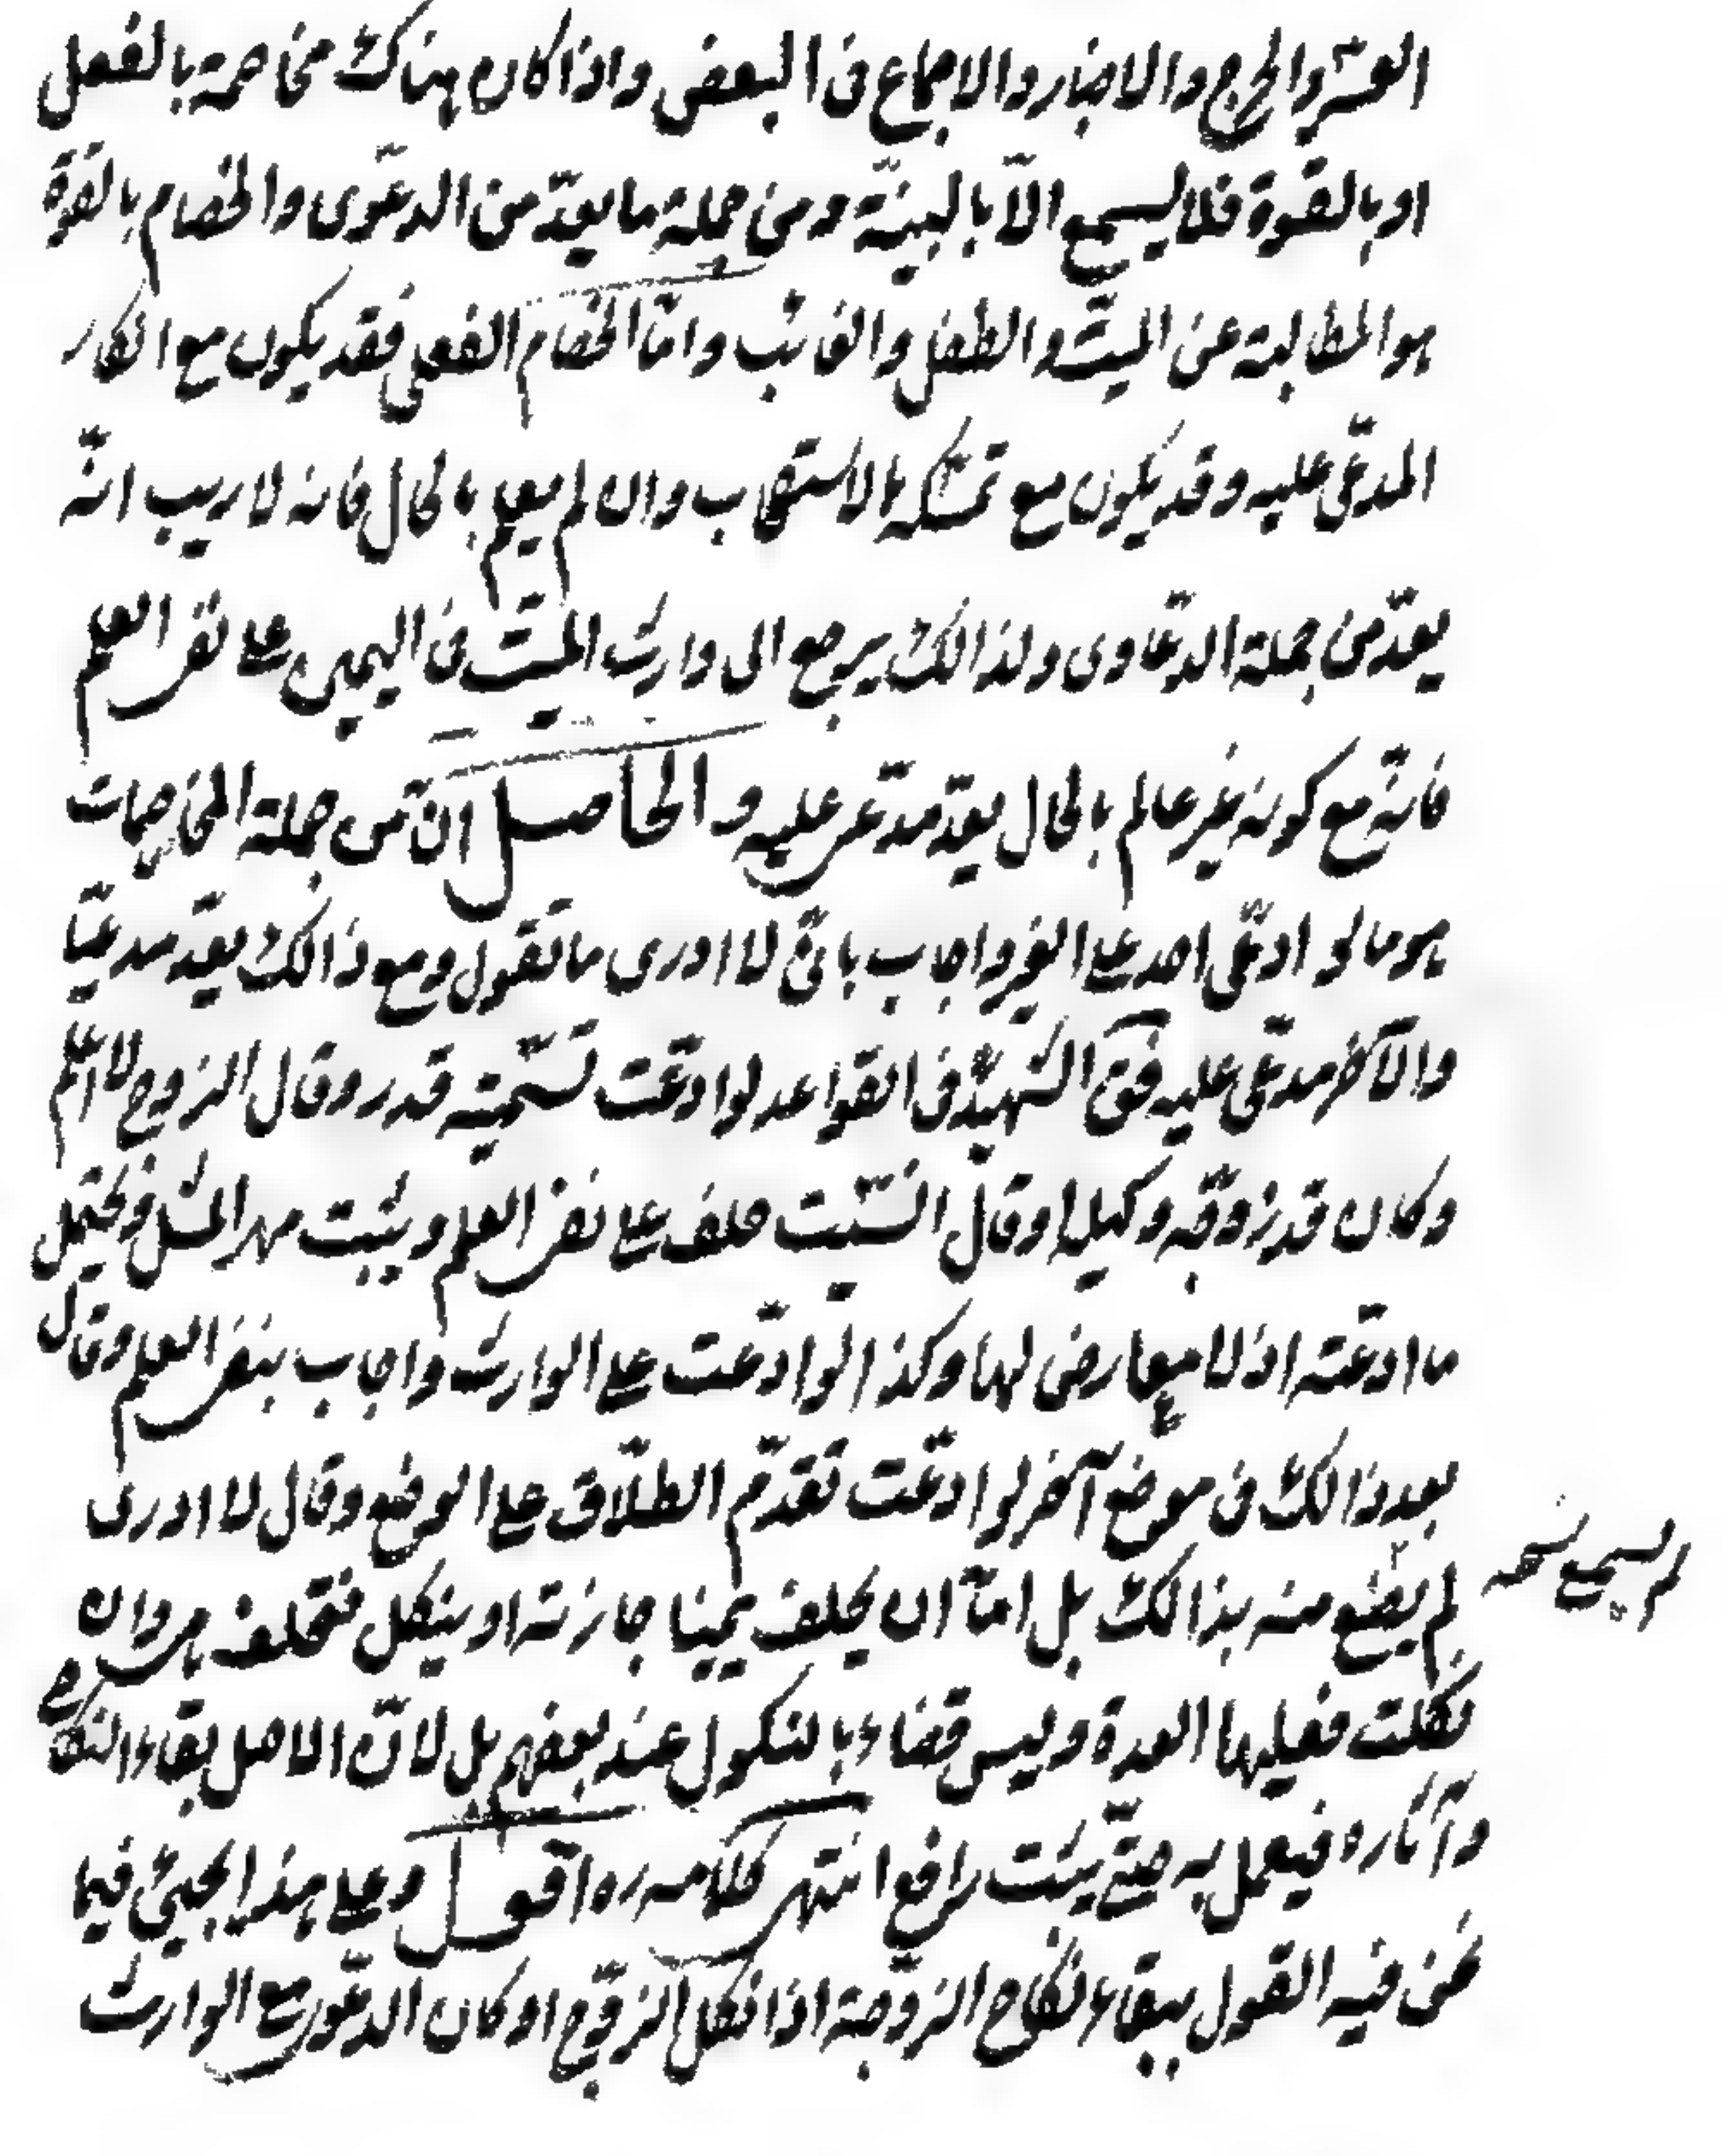 العسر والحرج والاخبار والاجماع فى البعض واذا كان هناك مخاصمة بالفعل
او بالقوة فلا يسمع الّا بالبينة ومن جملة ما يعدّ من الدعوى والخصام بالقوة
هو المطالبة عن الميت والطفل والغائب وامّا الخصام الفعلى فقد يكون مع انكار
المدّعى عليه وقد يكون مع تمسّكه بالاستصحاب وان لم يعلم بالحال فانه لا ريب انّه
يعدّ من جملة الدعاوى ولذالك يرجع الى وارث الميّت فى اليمين على نفى العلم
فانّه مع كونه غير عالم بالحال يعدّ مدّعى عليه و الحاصل انّ من جملة المخاصمات
هو ما لو ادعّى احد على الغير واجاب بانّى لا ادرى ما تقول ومع ذالك يعدّ مدعيّا
والآخر مدّعى عليه فعن الشهيدّ فى القواعد لو ادعّت تسميّة قدر وقال الزوج لا اعلم
وكان قد زوّجه وكيله او قال انسيّت حلف على نفى العلم ويثبت مهر المثل ويحتمل
ما ادعّته اذ لا معارض لها وكذا لو ادّعت على الوارث واجاب بنفى العلم وقال
بعد ذالك فى موضع آخر لو ادعّت تقدّم الطلّاق على الوضع وقال لا ادرى
لم يقنع منه بذالك بل امّا ان يحلف يمينا جازمة او ينكل فتحلف هى وان
لم يسمع نسخه
نكلت فعليها العدة وليس قضاء بالنكول عند بعضهم بل لانّ الاصل بقاء النكاح
وآثاره فيعمل به حتّى يثبت رافع انتهى كلامه ره اقول وعلى هذا يجيئ فيما
نحن فيه القول ببقاء نكاح الزوّجة اذا نكل الزوّج او كان الدعّوى مع الوارث